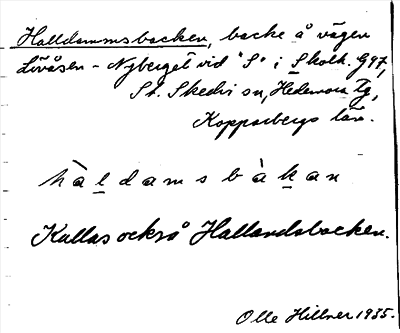 Halldammsbacken, backe å vägen
Lövåsen - Nyberget vid "S" i Skolk. G97,
St. Skedvi sn, Hedemora Tg,
Kopparbergs län.
hàldamsbàkan
Kallas också Hallandsbacken.
Olle Hillner 1935.